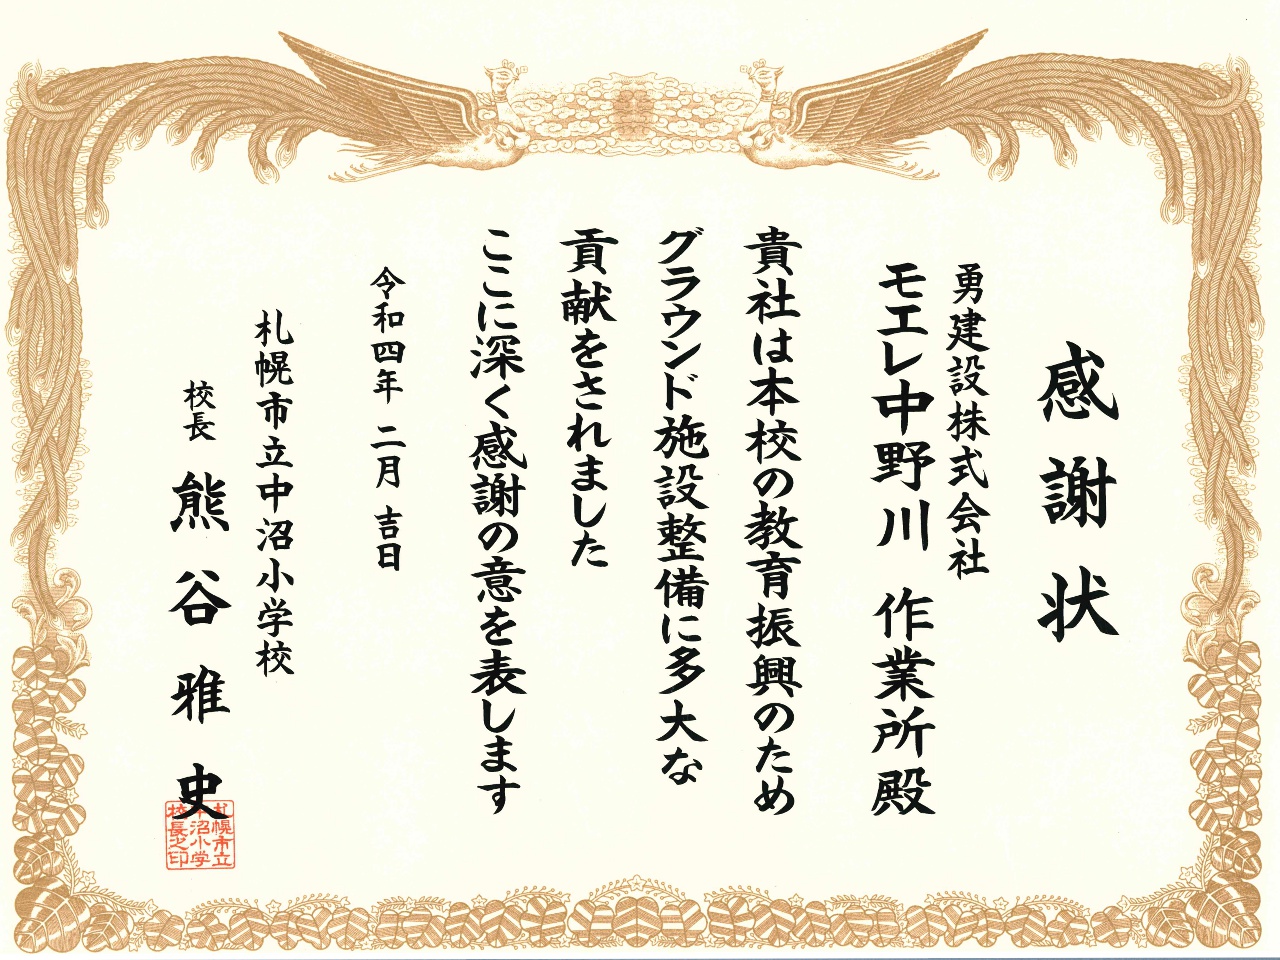 感謝状
勇建設株式会社
モエレ中野川 作業所殿
貴社は本校の教育振興のため
グラウンド施設整備に多大な
貢献をされました
ここに深く感謝の意を表します
令和四年 二月 吉日
札幌市立中沼小学校
校長 熊谷雅史
札幌市立
中沼小学
校長之印